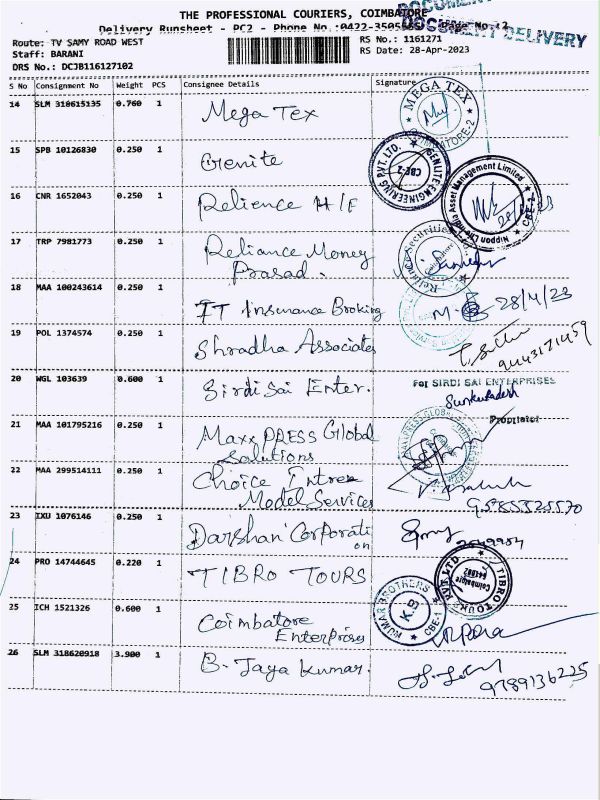 THE PROFESSIONAL COURIERS, COIMBATORE
DOCUMENT DELIVERY
Delivery Runsheet - PC2 - Phone No.:0422-3505585 Page No.:2
Route: TV SAMY ROAD WEST
RS No.: 1161271
Staff: BARANI
RS Date: 28-Apr-2023
DRS No.: DCJB116127102
S No Consignment No Weight PCS Consignee Details Signature
14 SLM 318615135 0.760 1 Mega Tex
MEGA TEX COIMBATORE-2
15 SPB 10126830 0.250 1 Genite
SENLITE ENGINEERING PVT. LTD. CBE-2
16 CNR 1652043 0.250 1 Relience H/F
Nippon Life India Asset Management Limited CBE-1
17 TRP 7981773 0.250 1 Reliance Money
Prasad.
Reliance Securities
18 MAA 100243614 0.250 1 IT Insurance Broking
28/4/23
19 POL 1374574 0.250 1 Shradha Associates
9443171459
20 WGL 103639 0.600 1 Sirdi Sai Enter.
For SIRDI SAI ENTERPRISES
Proprietor
21 MAA 101795216 0.250 1 Maxx PRESS Global
Solutions
22 MAA 299514111 0.250 1 Choice Entree
Model Services
9585525570
23 IXU 1076146 0.250 1 Darshan Corporati
on
24 PRO 14744645 0.220 1 TIBRO TOURS
TIBRO TOURS PVT. LTD Coimbatore 641002
25 ICH 1521326 0.600 1 Coimbatore
Enterprises
KUMAR BROTHERS K.B CBE-1
26 SLM 318620918 3.900 1 B. Jaya Kumar.
9789136225